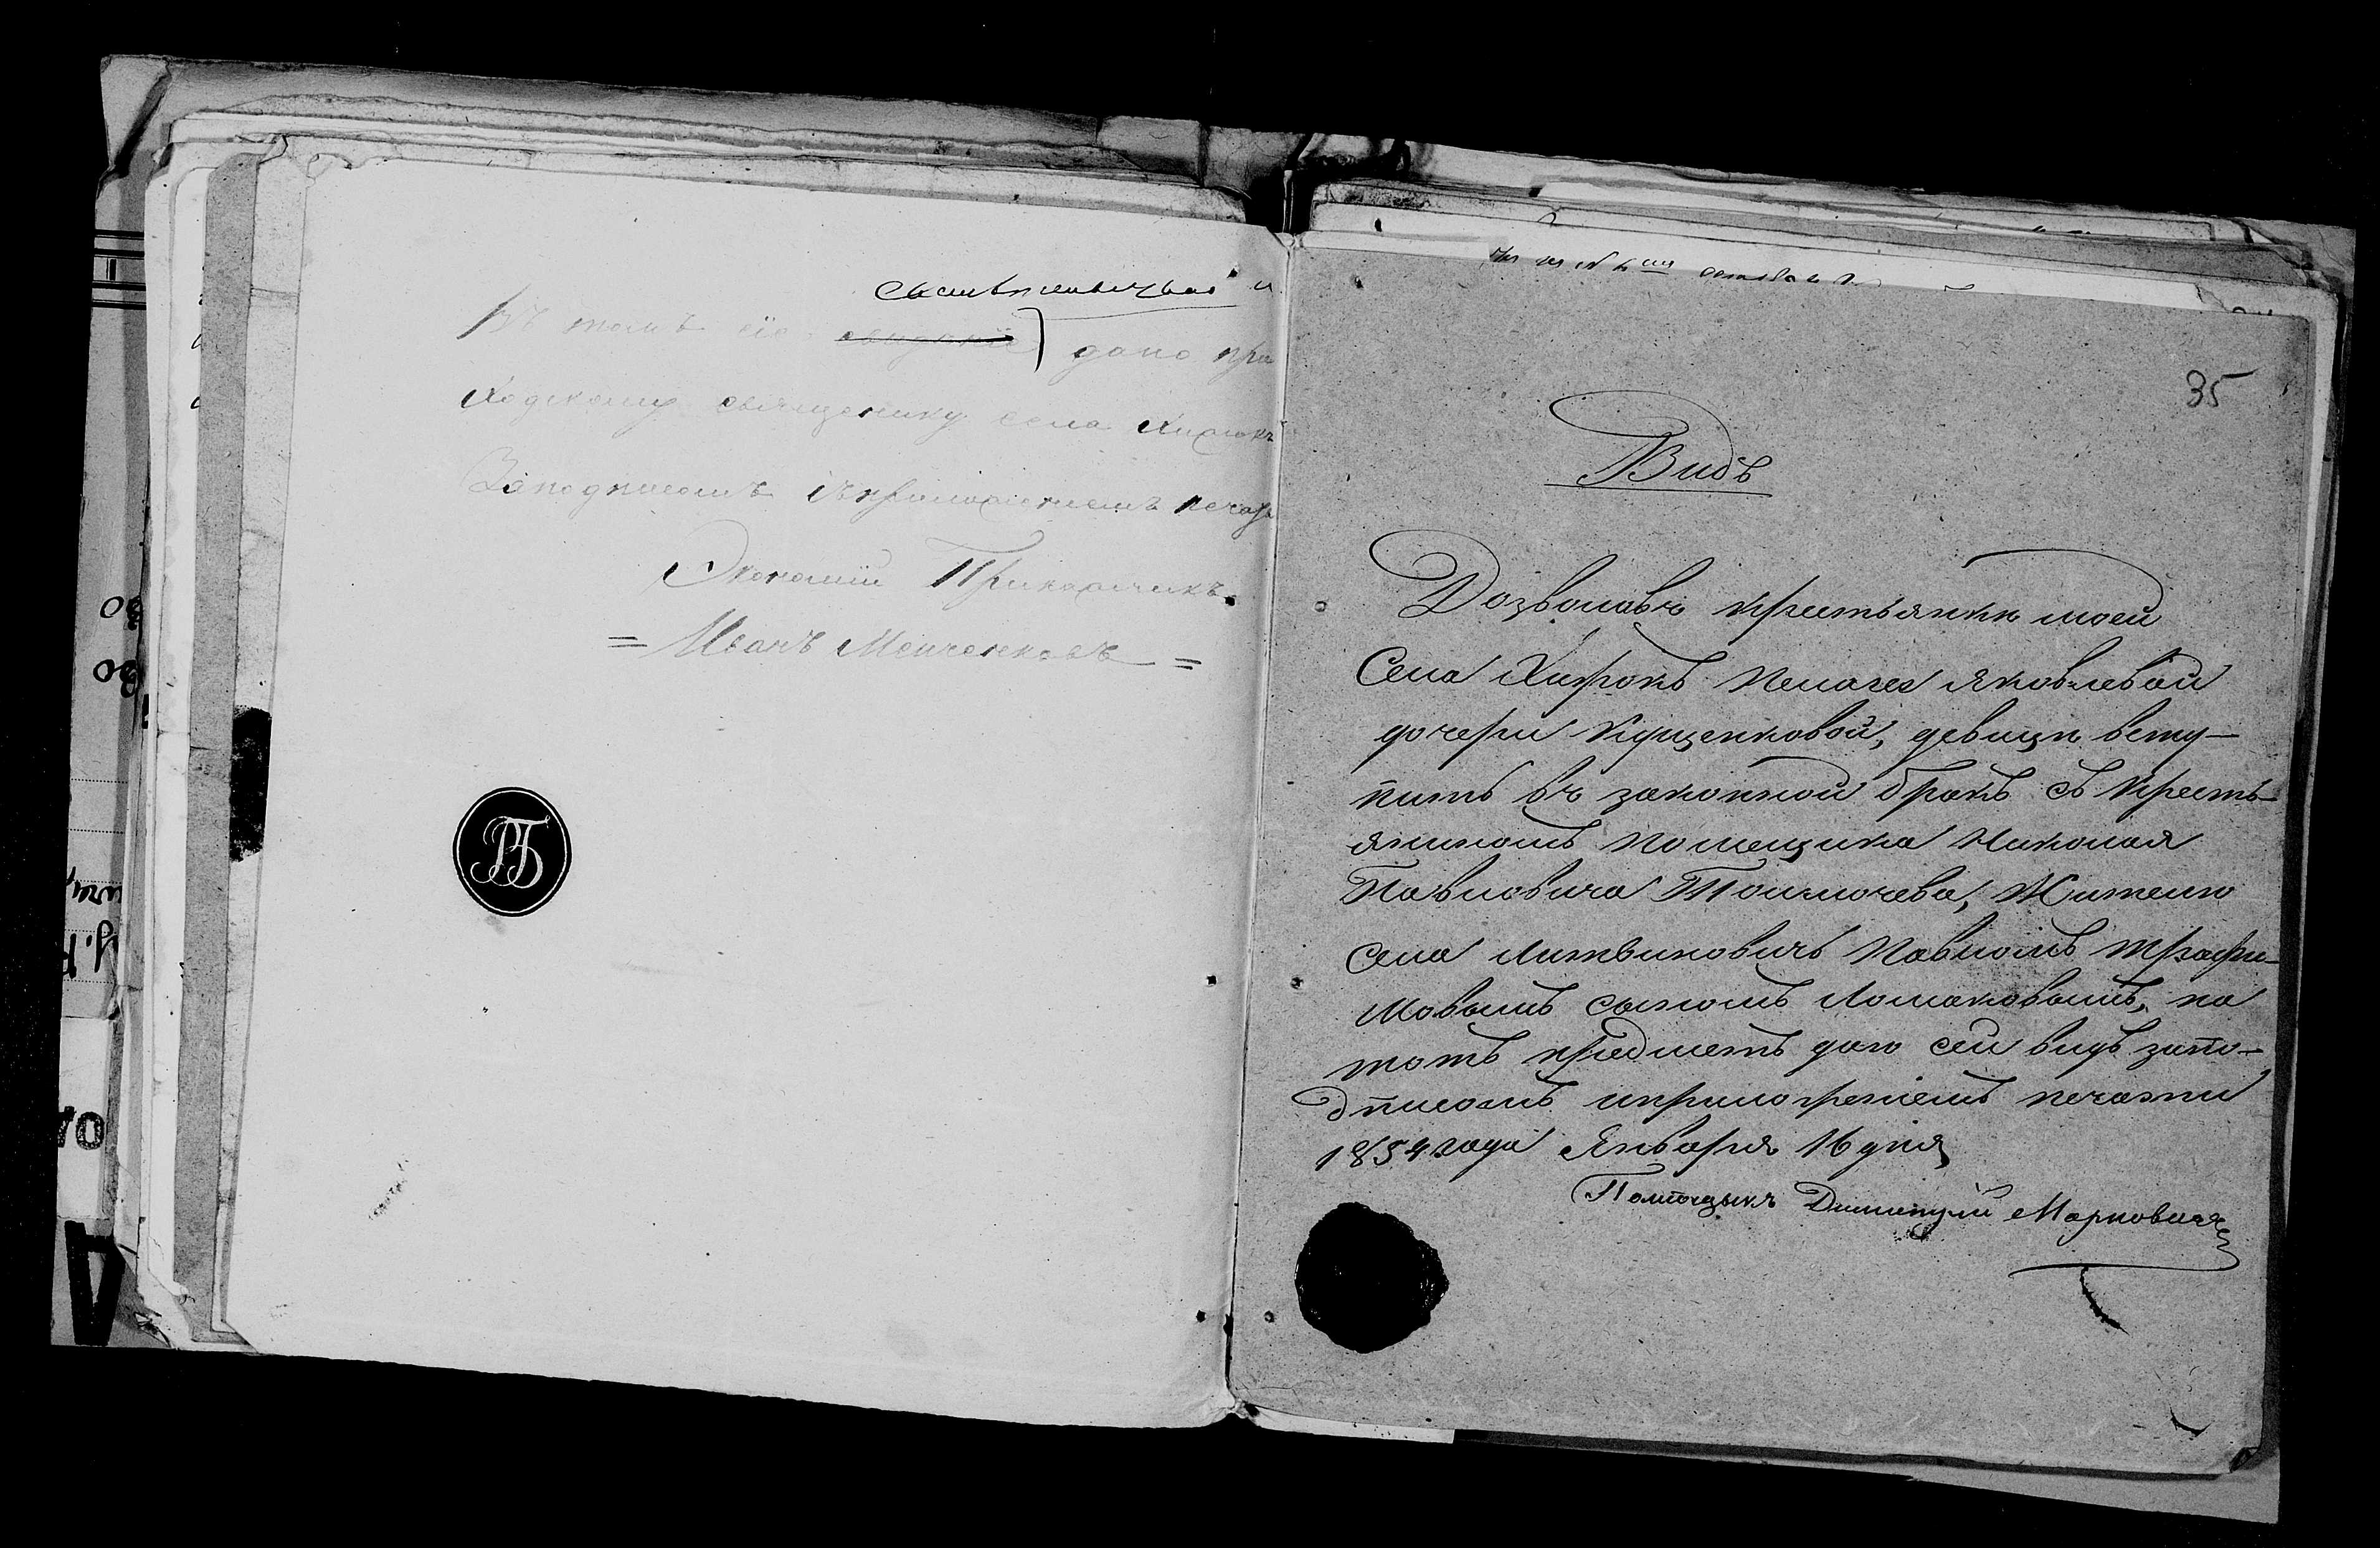 въ томъ сіе дано при
ходскому священику села Хирокъ
Заподписомъ і приложениемъ печати
Экономіи Прикащикъ
= Иванъ Менченковъ =
РБ
35
Видъ
Дозволавъ крестьянки моей
Села Хирокъ Пелагеи Яковлевой
дочери Кущенковой, девицы всту-
пить въ законной бракъ съ кресть-
яниномъ помещика Николая
Павловича Толмочева, Жителю
села Литвиновичъ Павломъ Трафи-
мовымъ сыномъ Ломаковымъ, на
тотъ предметъ даю сей видъ запо-
дписомъ иприложеніемъ печатии
1854 года Января 16 дня
Помѣщикъ Димитрій Марковичъ